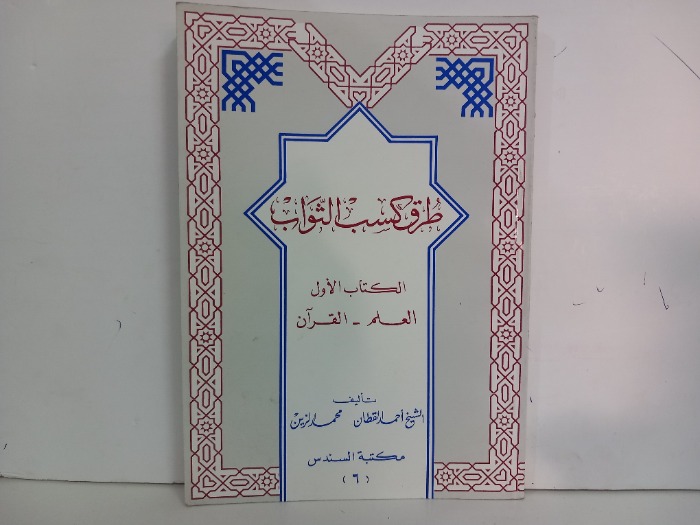 طُرق كسب الثّواب
الكتاب الأول
العلم - القرآن
تأليف
الشيخ أحمد القطان محمد الزين
مكتبة السندس
(٦)